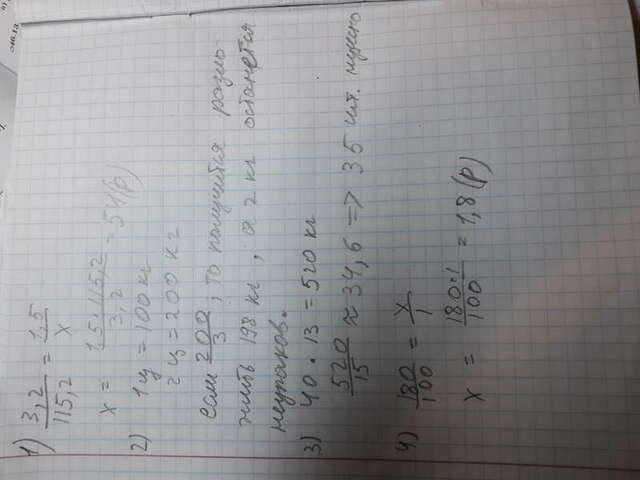 1) 3,2/115,2 = 1,5/x
x = 1,5·115,2/3,2 = 54(р)
2) 1ц = 100кг
2ц = 200 кг
если 200/3, то получится разло
жить 198 кг, а 2 кг останется
неупаков.
3) 40 · 13 = 520 кг
520/15 ≈ 34,6 => 35 шт. нужно
4) 180/100 = x/1
x = 180·1/100 = 1,8(р)